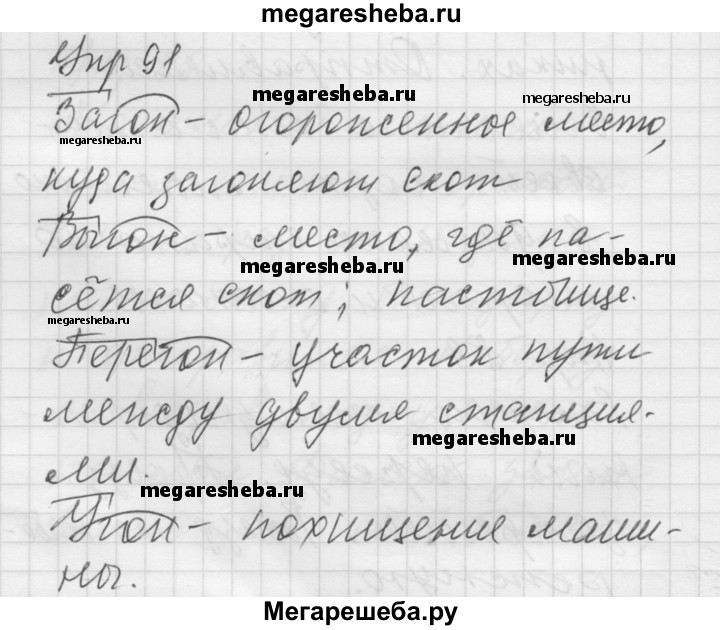 megaresheba.ru
Упр 91
megaresheba.ru
megaresheba.ru
Загон – огороженное место,
megaresheba.ru
куда загоняют скот
Выгон – место, где па-
megaresheba.ru
megaresheba.ru
сётся скот; пастбище.
megaresheba.ru
Перегон – участок пути
между двумя станция-
megaresheba.ru
ми.
megaresheba.ru
Угон – похищение маши-
ны.
Мегарешеба.ру